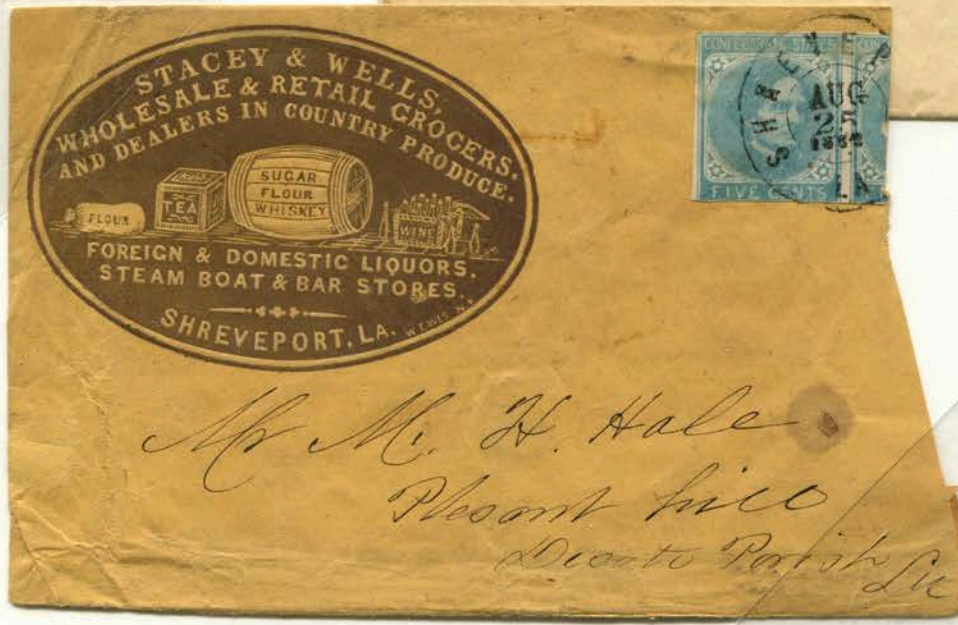 STACEY & WELLS,
WHOLESALE & RETAIL GROCERS.
AND DEALERS IN COUNTRY PRODUCE.
FLOUR
TEA
SUGAR
FLOUR
WHISKEY
WINE
FOREIGN & DOMESTIC LIQUORS.
STEAM BOAT & BAR STORES.
SHREVEPORT, LA.
FIVE CENTS
AUG
25
LA
Mr M. H. Hale
Plesant hill
Desoto Parish
La